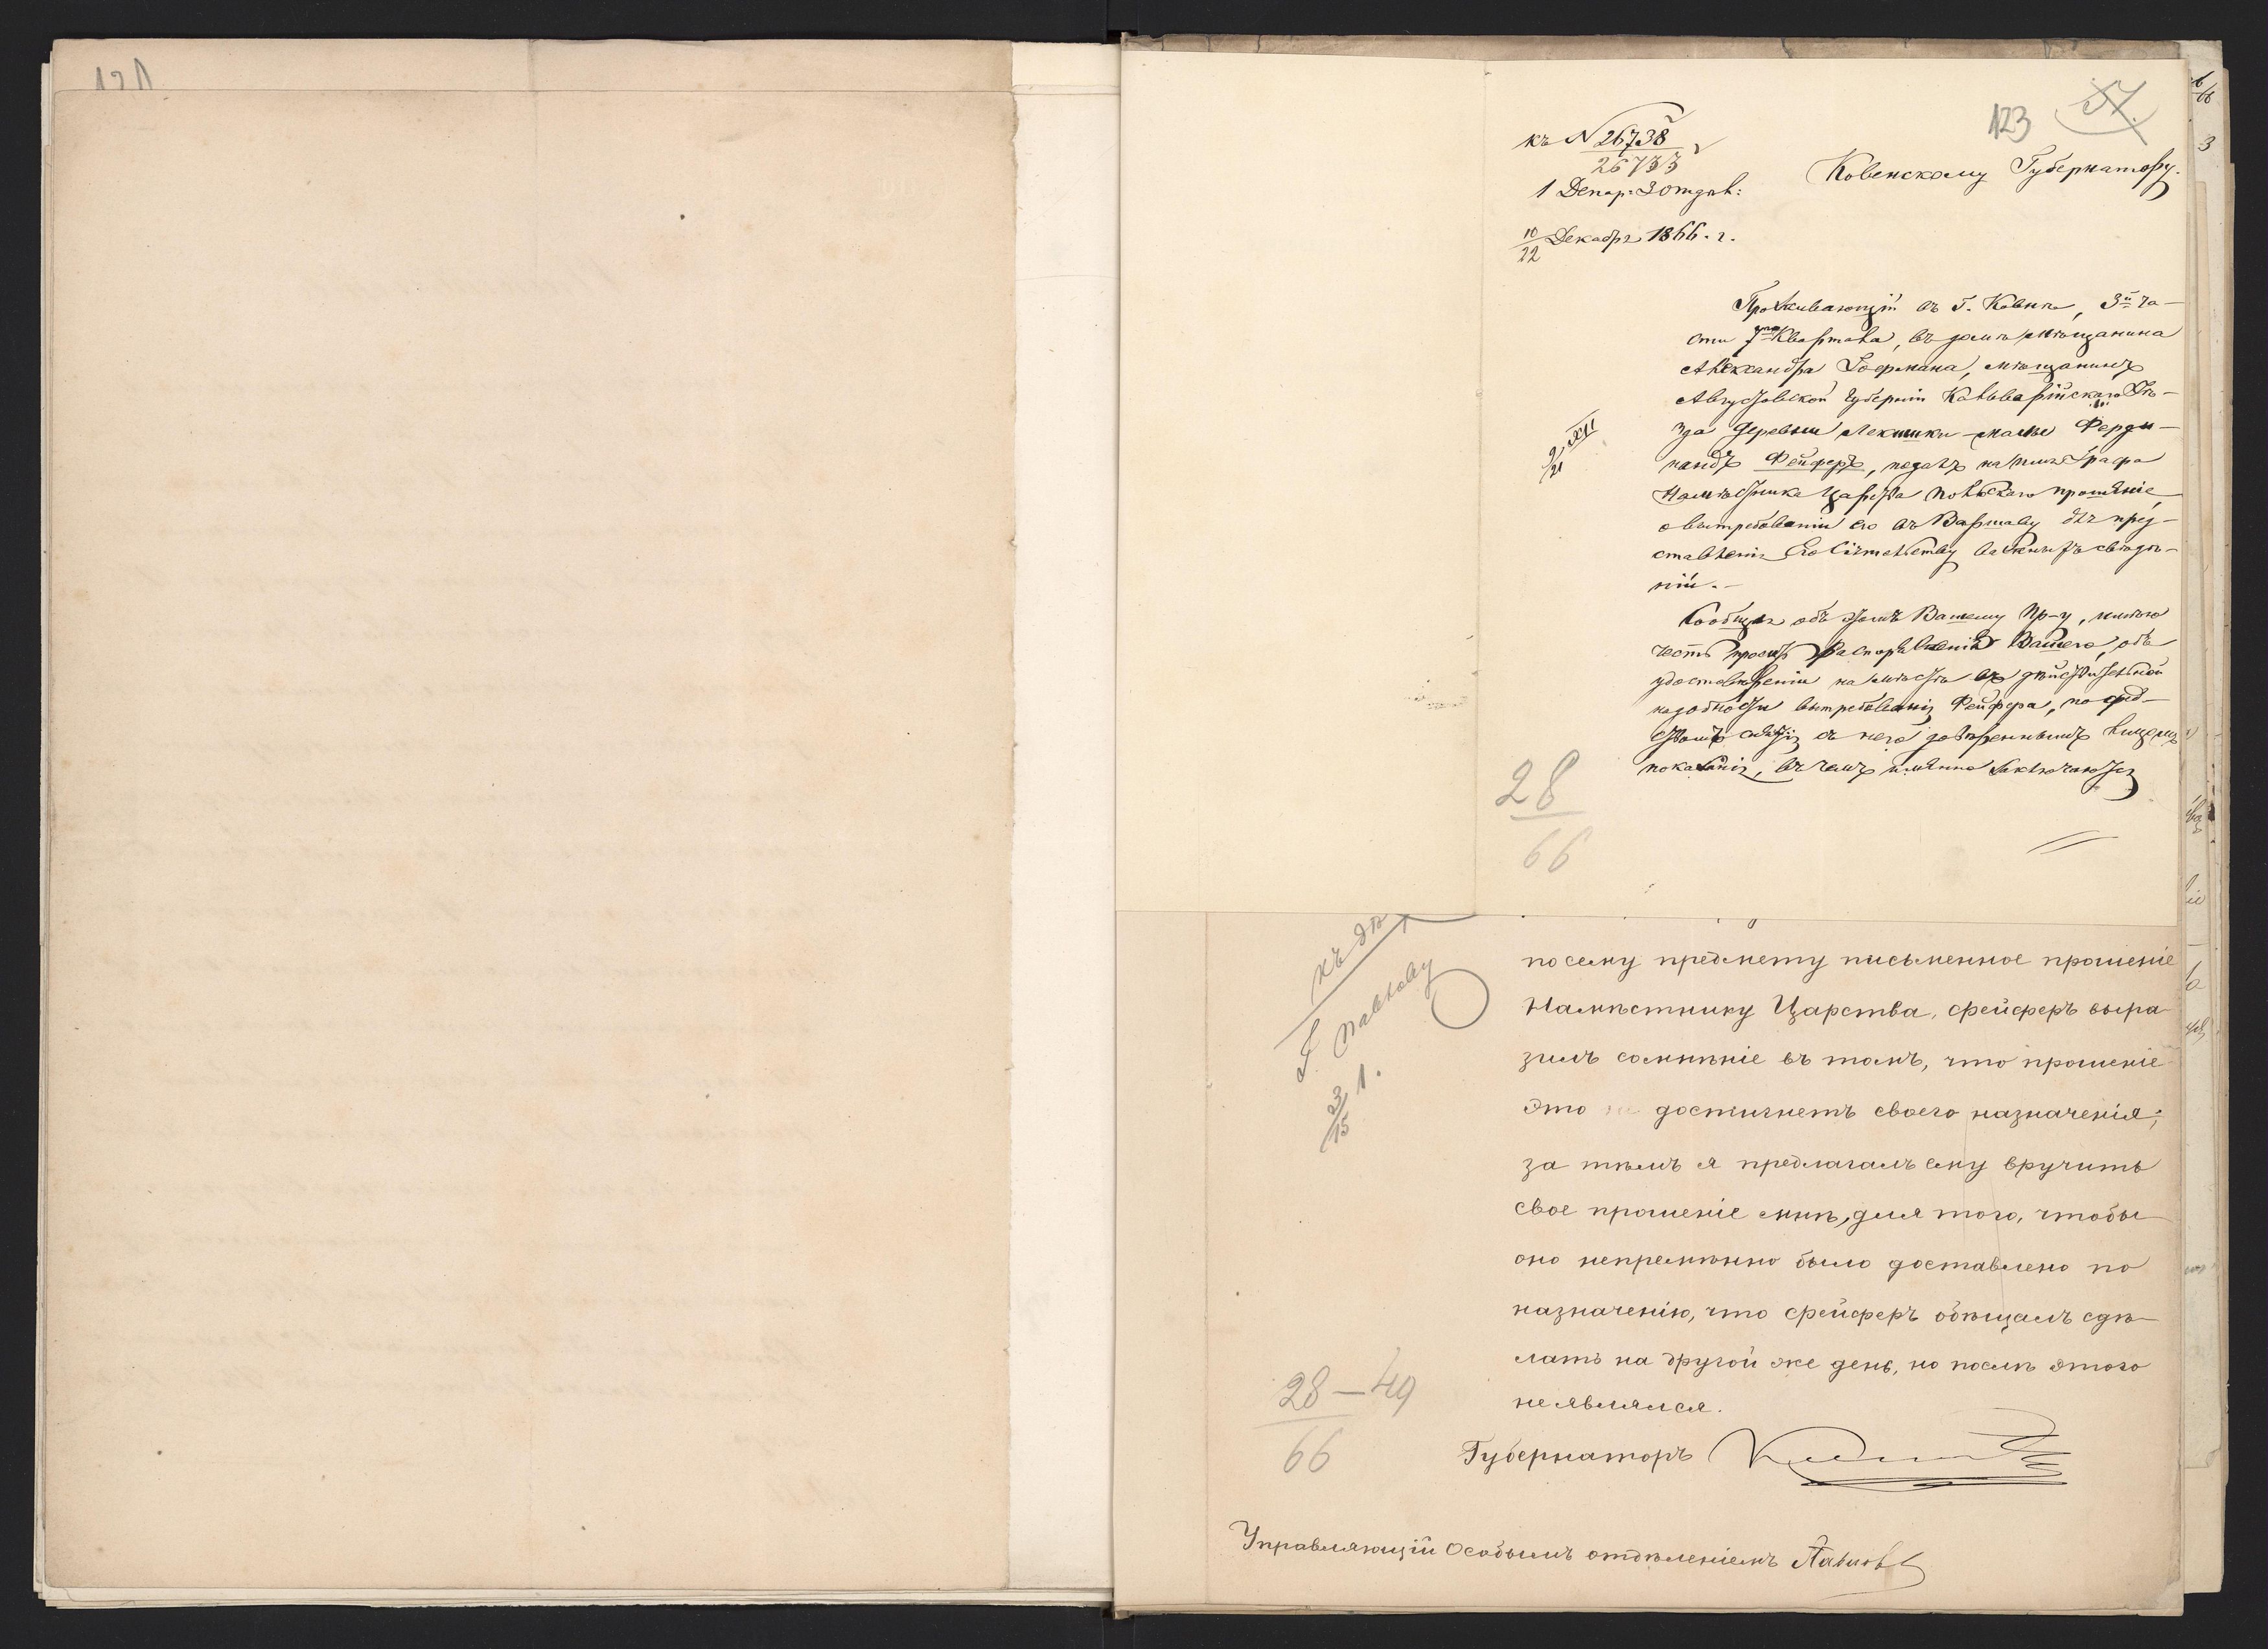 121
123
57.
къ N 26738
26733
1 Депар. 3 отдѣл:
10/22 Декабря 1866. г.
Ковенскому Губернатору.
Проживающій въ Г. Ковнѣ, 3й ча-
сти 7го Квартала, въ домѣ мѣщанина
Александра Гофмана, мѣщанинъ
Августовской Губерніи Кальварійскаго Уѣ-
зда деревни Лекишки-малые Ферди-
нандъ Фейферъ, подалъ на имя Графа
Намѣстника Царства Польскаго прошеніе,
о вытребованіи его въ Варшаву для пред-
ставленія Его Сіятельству важныхъ свѣдѣ-
ній.-
9/21 XII
Сообщая объ этомъ Вашему Пр-у, имѣю
честь просить распоряженія Вашего, объ
удостовѣреніи на мѣстѣ въ дѣйствительной
надобности вытребованія Фейфера, посред-
ствомъ снятія съ него довѣреннымъ лицемъ
показанія, въ чемъ именно заключаются
28
66
къ дѣ
Г Павлову
23/15 1.
по сему предмету письменное прошеніе
Намѣстнику Царства, Фейферъ выра-
зилъ сомнѣніе въ томъ, что прошеніе
это достигнетъ своего назначенія;
за тѣмъ я предлагалъ ему вручить
свое прошеніе мнѣ, для того, чтобы
оно непремѣнно было доставлено по
назначенію, что Фейферъ обѣщалъ сдѣ-
лать на другой же день, но послѣ этого
не являлся.
28-49
66
Губернаторъ
Управляющій Особымъ отдѣленіемъ Павловъ